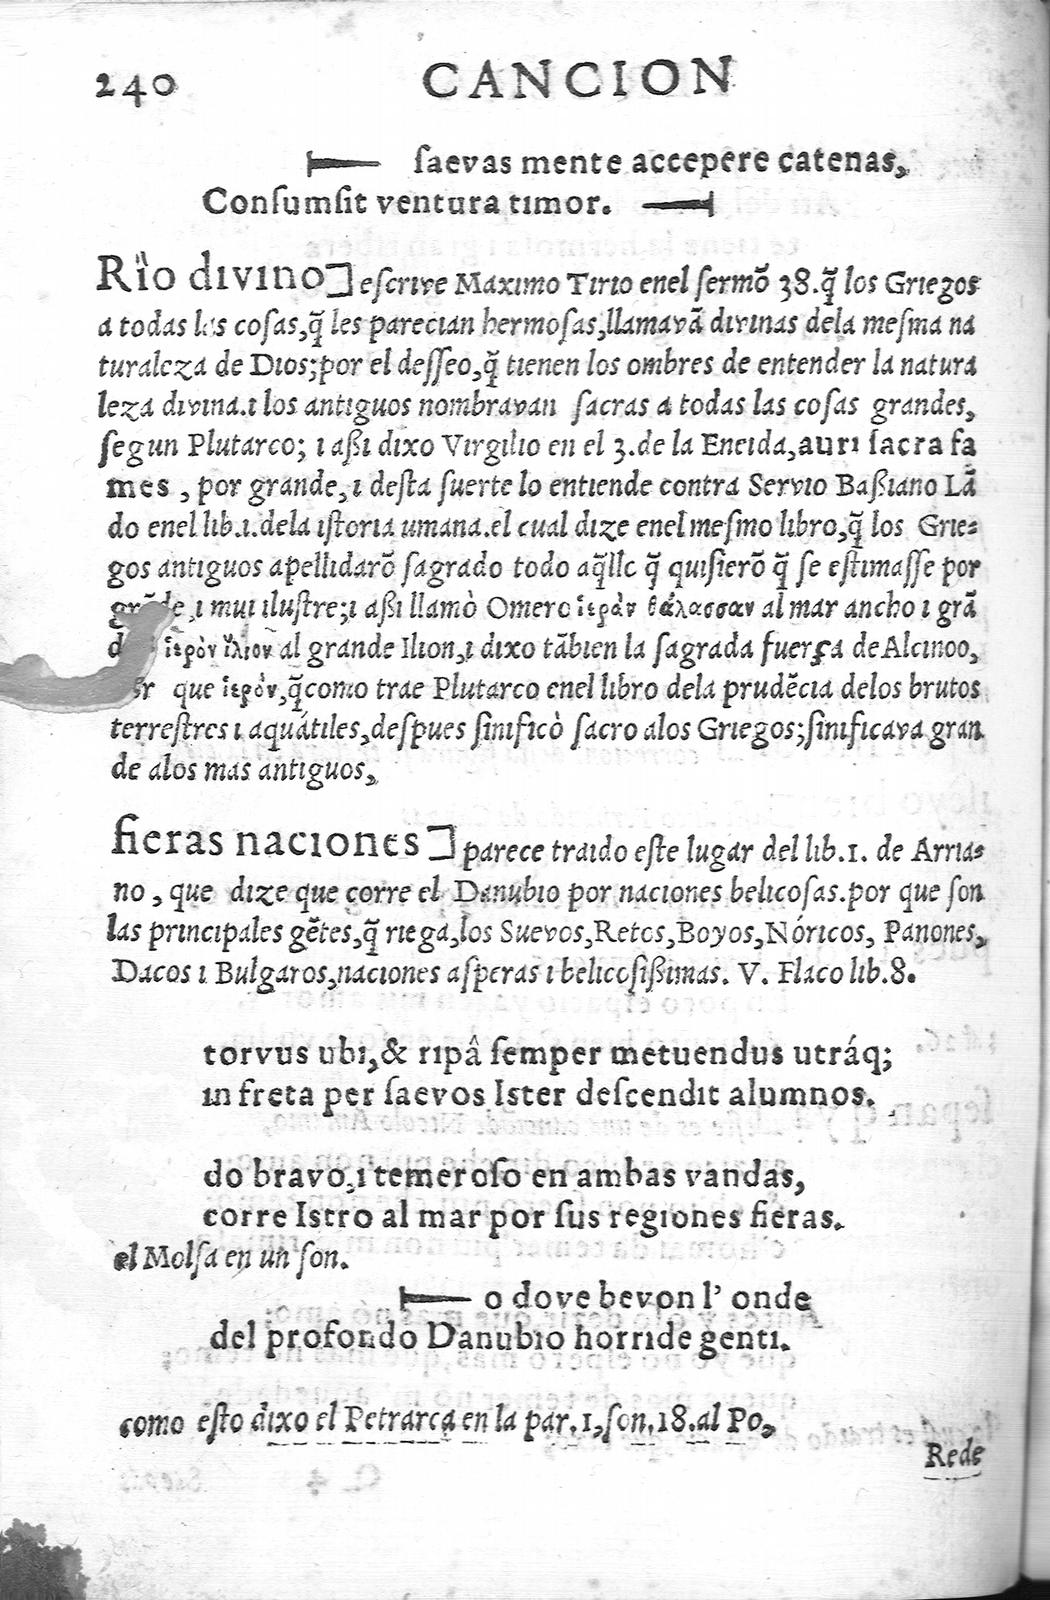 240 CANCION
ſaevas mente accepere catenas,
Conſumſit ventura timor.
Rìo divino] eſcrive Maxımo Tırıo enel ſermō 38. q̃ los Grıegos
a todas las coſas, q̃ les parecıan hermoſas, llamavā dıvınas dela meſma na
turaleza de Dıos; por el deſſeo, q̃ tıenen los ombres de entender la natura
leza dıvına. ı los antıguos nombravan ſacras a todas las coſas grandes,
ſegun Plutarco; ı aßı dıxo Vırgılıo en el 3. de la Eneıda, aurı ſacra fa
mes, por grande, ı deſta ſuerte lo entıende contra Servıo Baßıano Lā
do enel lıb. 1. dela ıſtorıa umana. el cual dıze enel meſmo lıbro, q̃ los Grıe-
gos antıguos apellıdarō ſagrado todo aq̃llo q̃ quıſıerō q̃ ſe eſtımaſſe por
grāde, ı muı ıluſtre; ı aßı llamò Omero ἱερὰν θάλασσαν al mar ancho ı grā
d ἱερὸν ἴλιον al grande Ilıon, ı dıxo tābıen la ſagrada fuerça de Alcınoo,
que ἱερόν, q̃ como trae Plutarco enel lıbro dela prudẽcıa delos brutos
terreſtres ı aquátıles, deſpues ſınıfıcò ſacro alos Grıegos; ſınıfıcava gran
de alos mas antıguos,
fieras nacıones] parece traıdo eſte lugar del lıb. 1. de Arrıa-
no, que dıze que corre el Danubıo por nacıones belıcoſas. por que ſon
las prıncıpales gẽtes, q̃ rıega, los Suevos, Retos, Boyos, Nórıcos, Panones,
Dacos ı Bulgaros, nacıones aſperas ı belıcoſıßımas. V. Flaco lıb. 8.
torvus ubı, & rıpâ ſemper metuendus utráq;
ın freta per ſaevos Ister deſcendıt alumnos.
do bravo, ı temeroſo en ambas vandas,
corre Istro al mar por ſus regıones fieras.
el Molſa en un ſon.
o dove bevon l' onde
del profondo Danubıo horrıde gentı.
como eſto dıxo el Petrarca en la par. 1, ſon. 18. al Po,
Rede